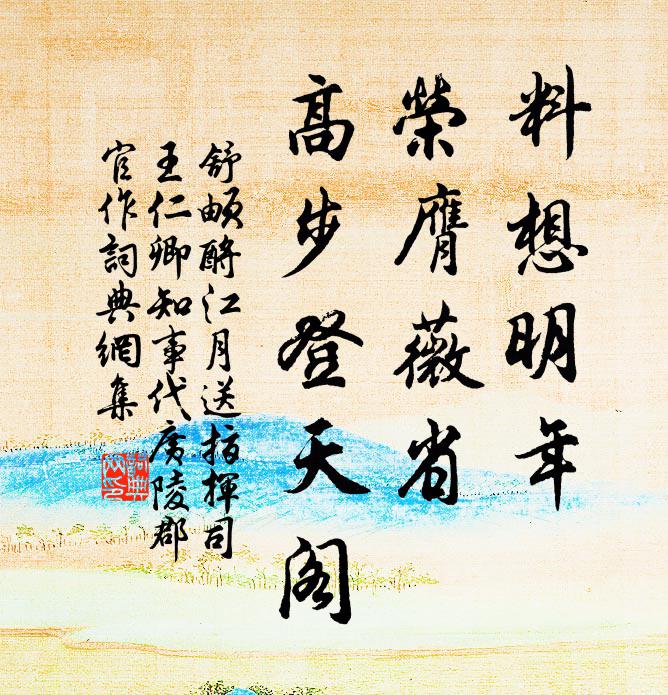 料想明年
榮膺薇省
高步登天閣
舒頔酹江月送指揮司
王仁卿知事代廣陵郡
官作詞典網集